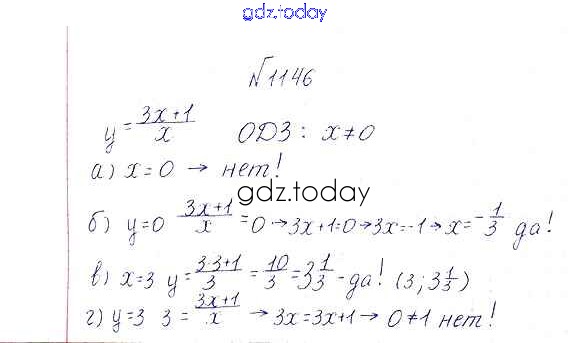 gdz.today
№1146
y = (3x+1)/x   ОДЗ : x≠0
а) x=0 → нет!
gdz.today
б) y=0  (3x+1)/x = 0 → 3x+1=0 → 3x=-1 → x= -1/3 да!
в) x=3  y = (3·3+1)/3 = 10/3 = 3 1/3 - да! (3; 3 1/3)
г) y=3  3 = (3x+1)/x → 3x=3x+1 → 0≠1 нет!